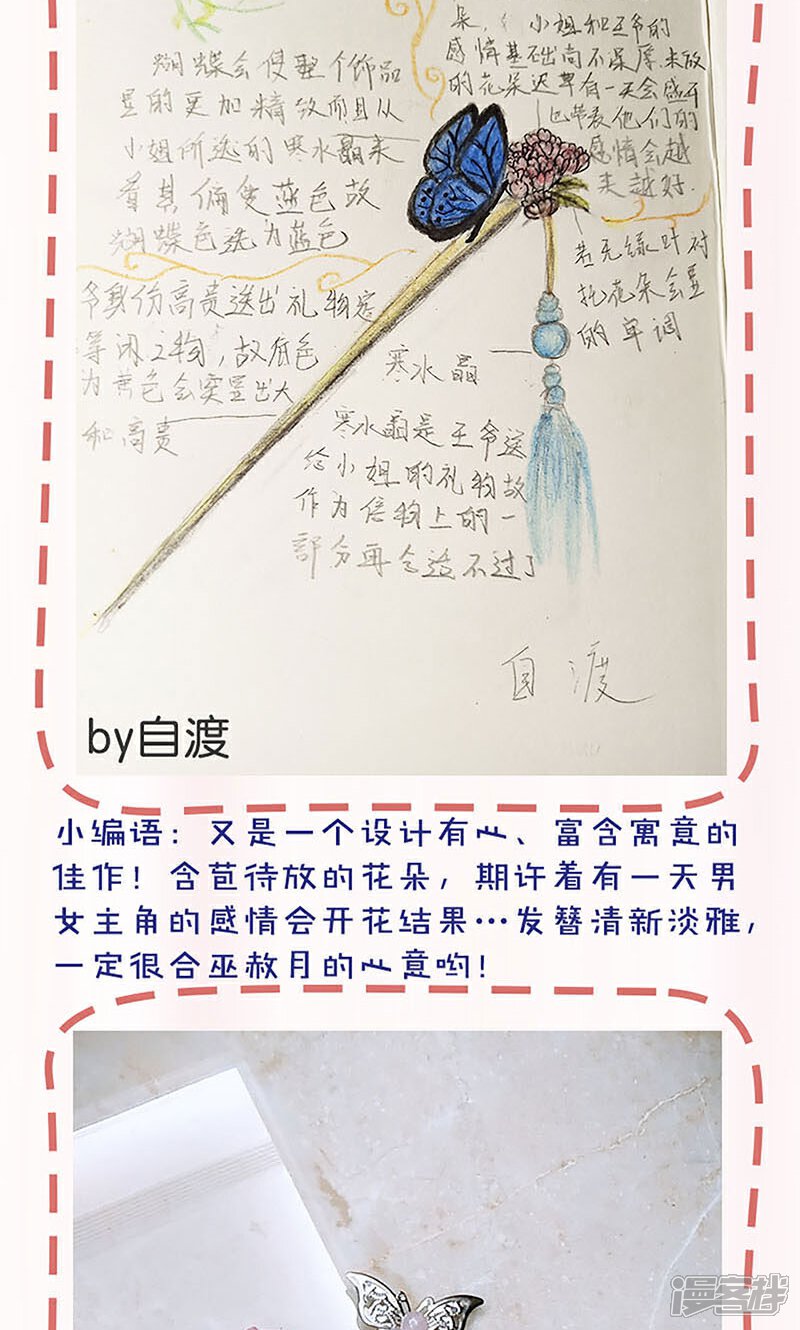 朵,小姐和王爷的
感情基础尚不深厚.未放
的花朵迟早有一天会盛开
也带表他们的
感情会越
来越好.
蝴蝶会使整个饰品
显的更加精致而且从
小姐所选的寒水晶来
看其偏爱蓝色故
蝴蝶色选为蓝色
若无绿叶衬
托花朵会显
的单调
爷身份高贵送出礼物定
等闲之物,故底色
为黄色会突显出大
和高贵
寒水晶
寒水晶是王爷送
给小姐的礼物故
作为信物上的一
部分再合适不过了
自渡
by自渡
小编语：又是一个设计有心、富含寓意的
佳作！含苞待放的花朵，期许着有一天男
女主角的感情会开花结果…发簪清新淡雅，
一定很合巫赦月的心意哟！
漫客栈